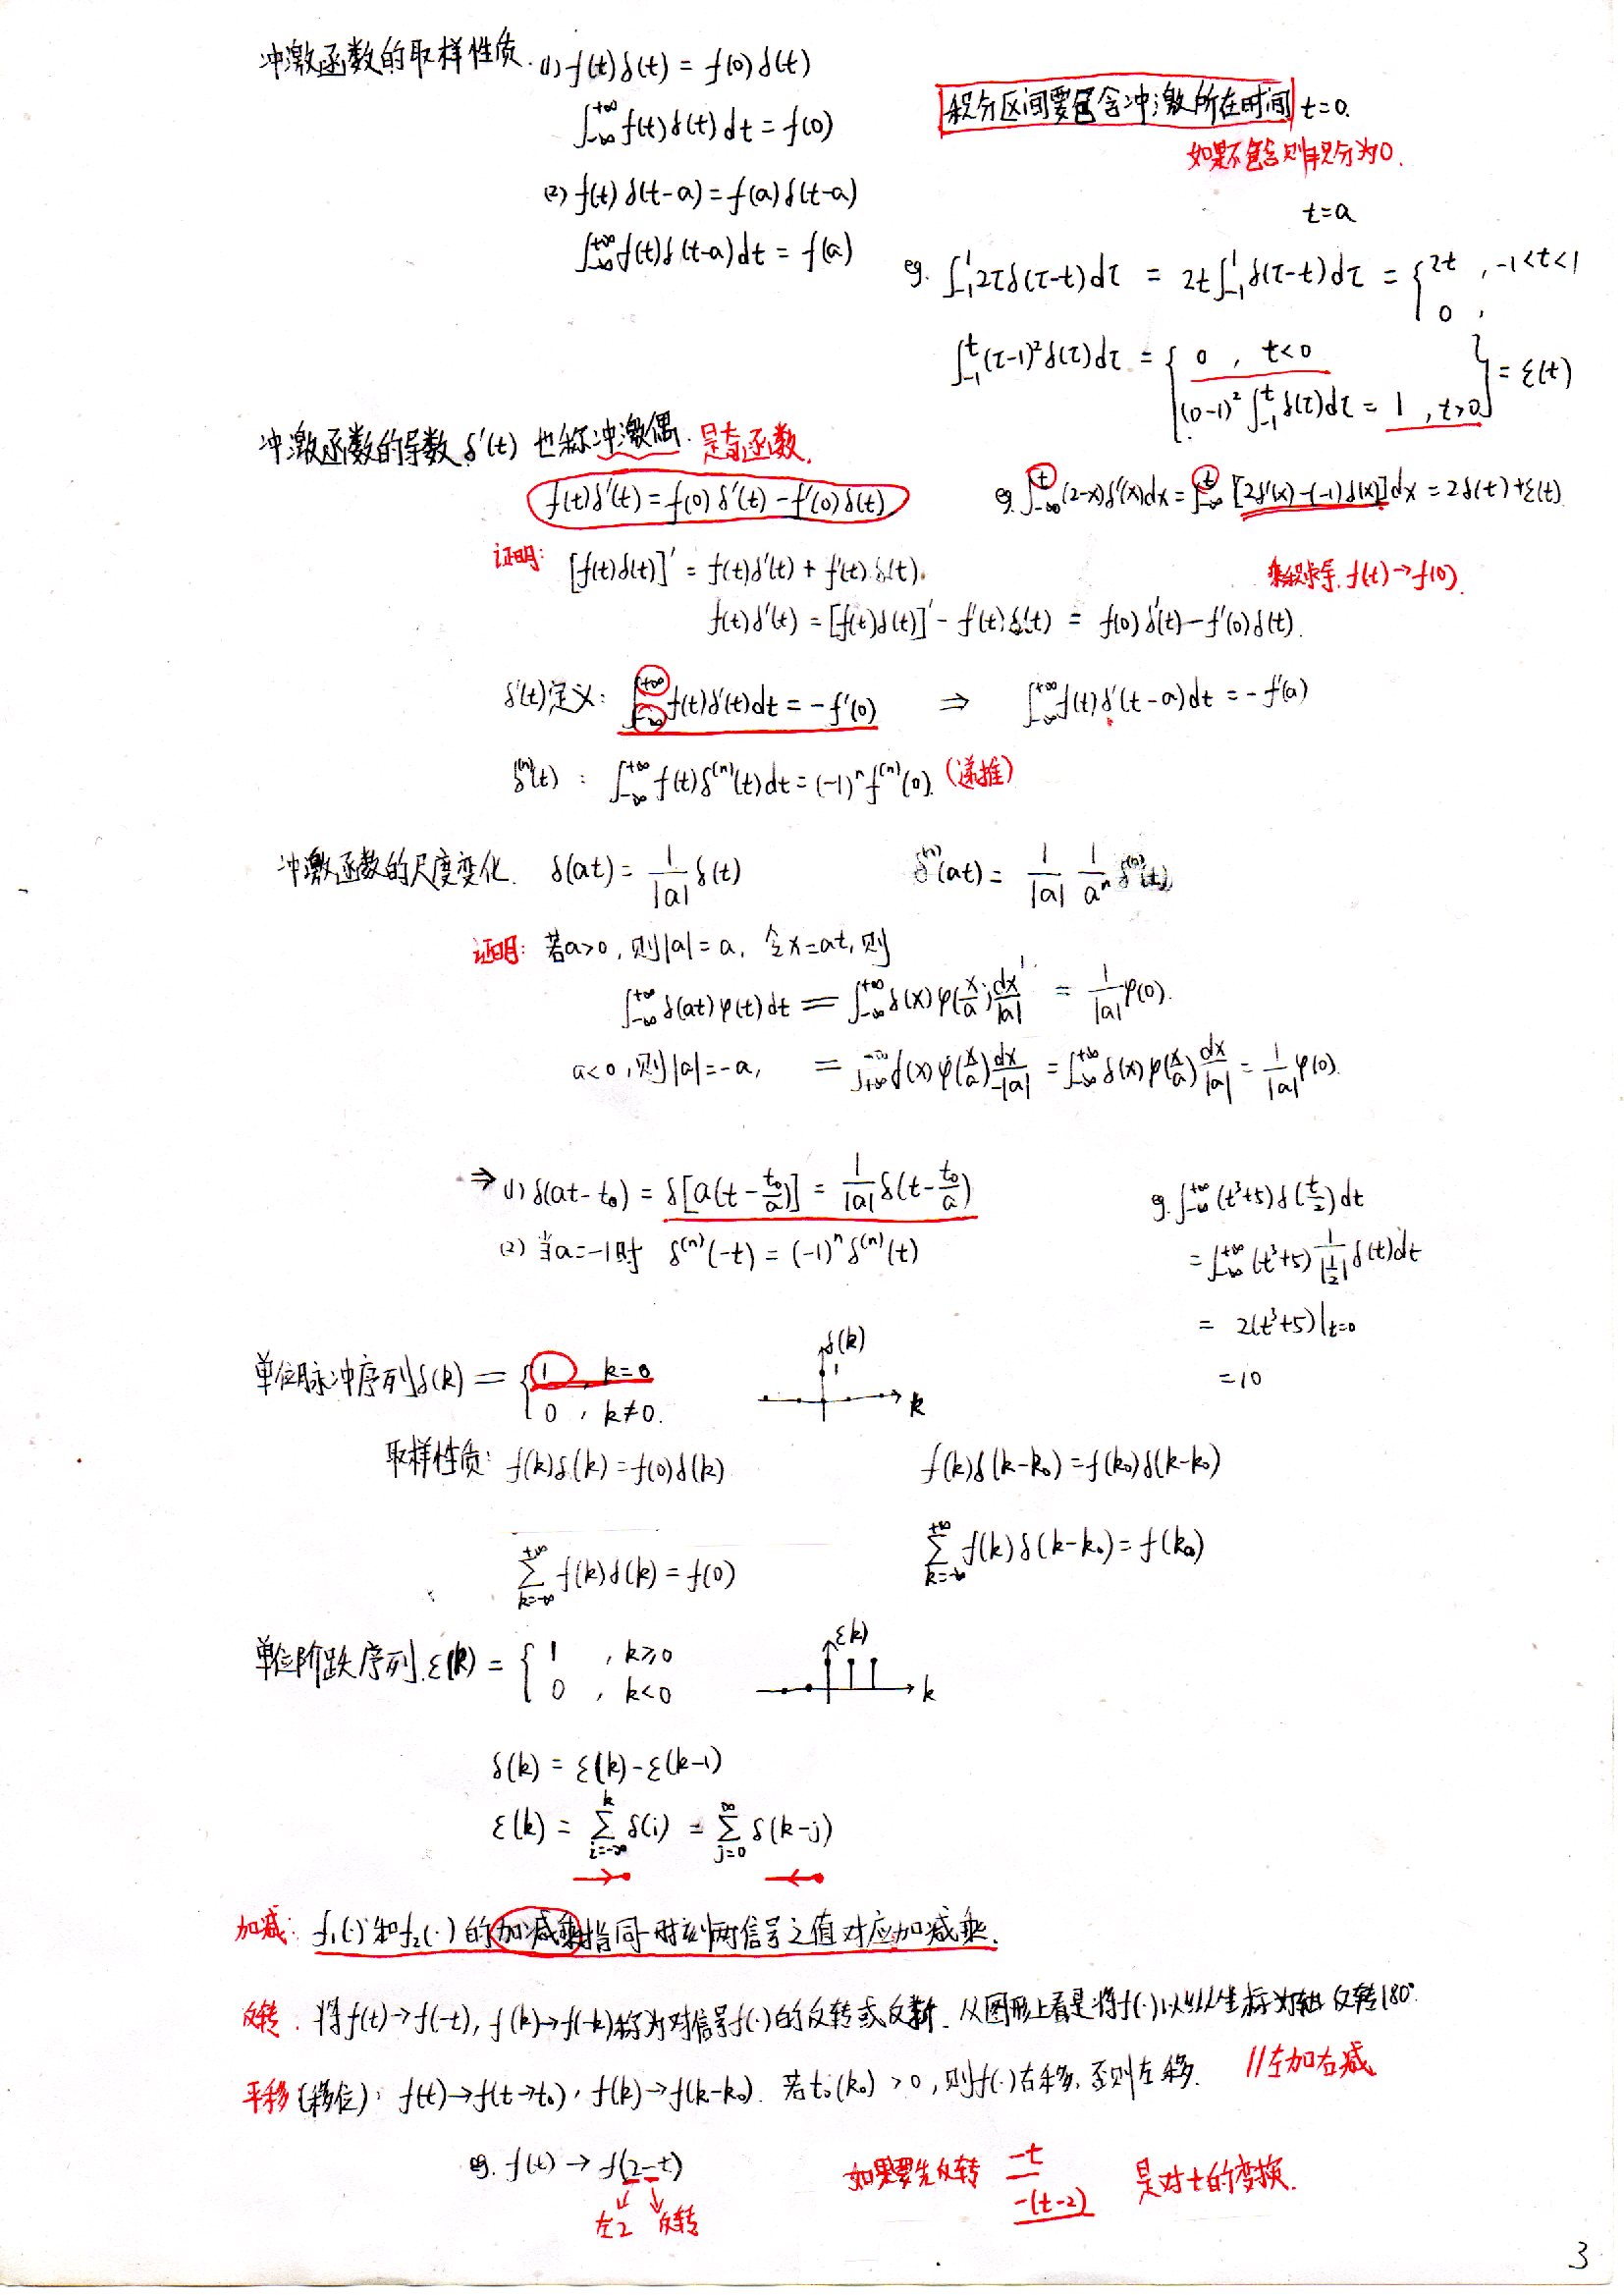 冲激函数的取样性质. (1) f(t)δ(t) = f(0)δ(t)
∫_{-∞}^{+∞} f(t)δ(t)dt = f(0)
积分区间要包含冲激所在时间 t=0.
如果不包含则积分为0.
(2) f(t)δ(t-a) = f(a)δ(t-a)
t=a
∫_{-∞}^{+∞} f(t)δ(t-a)dt = f(a)
eg. ∫_{-1}^{1} 2τδ(τ-t)dτ = 2t∫_{-1}^{1} δ(τ-t)dτ = { 2t , -1<t<1
0 ,
∫_{-1}^{t} (τ-1)²δ(τ)dτ = { 0 , t<0
(0-1)² ∫_{-1}^{t} δ(τ)dτ = 1 , t>0 } = ε(t)
冲激函数的导数 δ'(t) 也称冲激偶. 是奇函数.
f(t)δ'(t) = f(0)δ'(t) - f'(0)δ(t)
eg. ∫_{-∞}^{t} (2-x)δ'(x)dx = ∫_{-∞}^{t} [2δ'(x)-(-1)δ(x)]dx = 2δ(t)+ε(t).
证明: [f(t)δ(t)]' = f(t)δ'(t) + f'(t)δ(t).
乘积求导. f(t)→f(0).
f(t)δ'(t) = [f(t)δ(t)]' - f'(t)δ(t) = f(0)δ'(t) - f'(0)δ(t).
δ'(t)定义: ∫_{-∞}^{+∞} f(t)δ'(t)dt = -f'(0) ⇒ ∫_{-∞}^{+∞} f(t)δ'(t-a)dt = -f'(a)
δ^{(n)}(t) : ∫_{-∞}^{+∞} f(t)δ^{(n)}(t)dt = (-1)^n f^{(n)}(0). (递推)
冲激函数的尺度变化. δ(at) = \frac{1}{|a|} δ(t)
δ^{(n)}(at) = \frac{1}{|a|} \frac{1}{a^n} δ^{(n)}(t)
证明: 若a>0, 则|a|=a, 令x=at, 则
∫_{-∞}^{+∞} δ(at)φ(t)dt = ∫_{-∞}^{+∞} δ(x)φ(\frac{x}{a})\frac{dx}{|a|} = \frac{1}{|a|}φ(0).
a<0, 则|a|=-a, = ∫_{+∞}^{-∞} δ(x)φ(\frac{x}{a})\frac{dx}{-|a|} = ∫_{-∞}^{+∞} δ(x)φ(\frac{x}{a})\frac{dx}{|a|} = \frac{1}{|a|}φ(0).
⇒ (1) δ(at-t₀) = δ[a(t-\frac{t₀}{a})] = \frac{1}{|a|}δ(t-\frac{t₀}{a})
(2) 当a=-1时 δ^{(n)}(-t) = (-1)^n δ^{(n)}(t)
eg. ∫_{-∞}^{+∞} (t³+5)δ(\frac{t}{2})dt
= ∫_{-∞}^{+∞} (t³+5)\frac{1}{|\frac{1}{2}|}δ(t)dt
= 2(t³+5)|_{t=0}
=10
单位脉冲序列δ(k) = { 1 , k=0
0 , k≠0.
δ(k)
1
k
取样性质: f(k)δ(k) = f(0)δ(k)
f(k)δ(k-k₀) = f(k₀)δ(k-k₀)
∑_{k=-∞}^{+∞} f(k)δ(k) = f(0)
∑_{k=-∞}^{+∞} f(k)δ(k-k₀) = f(k₀)
单位阶跃序列.ε(k) = { 1 , k≥0
0 , k<0
ε(k)
k
δ(k) = ε(k)-ε(k-1)
ε(k) = ∑_{i=-∞}^{k} δ(i) = ∑_{j=0}^{∞} δ(k-j)
加减: f₁(·)和f₂(·)的加减乘指同一时刻两信号之值对应加减乘.
反转. 将f(t)→f(-t), f(k)→f(-k)称为对信号f(·)的反转或反折. 从图形上看是将f(·)以纵坐标为轴反转180°.
平移(移位): f(t)→f(t-t₀), f(k)→f(k-k₀). 若t₀(k₀)>0, 则f(·)右移, 否则左移. //左加右减
eg. f(t)→f(2-t)
左2 反转
如果要先反转 -t
-(t-2)
是对t的变换.
3